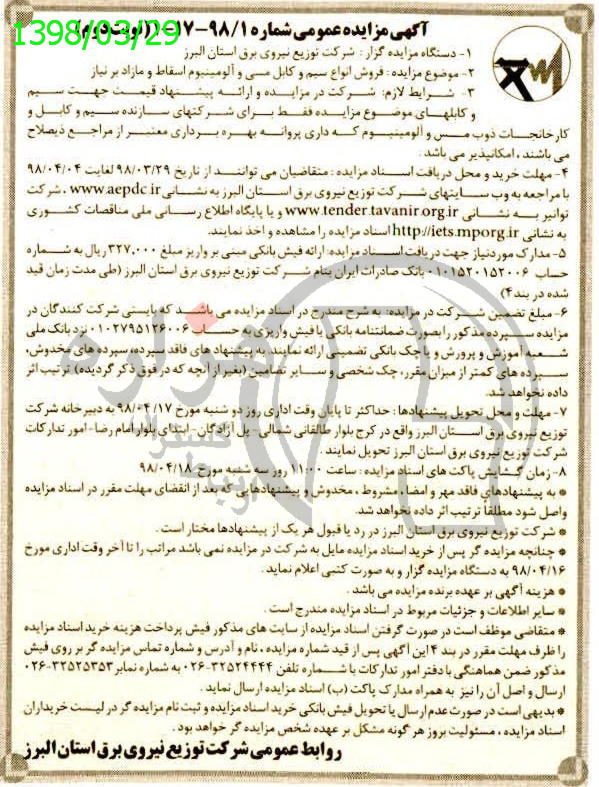 1398/03/29
آگهی مزایده عمومی شماره ۹۸/۱-۱۷ (نوبت دوم)
۱- دستگاه مزایده گزار : شرکت توزیع نیروی برق استان البرز
۲- موضوع مزایده : فروش انواع سیم و کابل مسی و آلومینیوم اسقاط و مازاد بر نیاز
۳- شرایط لازم: شرکت در مزایده و ارائه پیشنهاد قیمت جهت سیم
و کابلهای موضوع مزایده فقط برای شرکتهای سازنده سیم و کابل و
کارخانجات ذوب مس و آلومینیوم که داری پروانه بهره برداری معتبر از مراجع ذیصلاح
می باشند ، امکانپذیر می باشد .
۴- مهلت خرید و محل دریافت اسناد مزایده : متقاضیان می توانند از تاریخ ۹۸/۰۳/۲۹ لغایت ۹۸/۰۴/۰۴
با مراجعه به وب سایتهای شرکت توزیع نیروی برق استان البرز به نشانی www.aepdc.ir ، شرکت
توانیر به نشانی www.tender.tavanir.org.ir و یا پایگاه اطلاع رسانی ملی مناقصات کشوری
به نشانی http://iets.mporg.ir اسناد مزایده را مشاهده و اخذ نمایند.
۵- مدارک موردنیاز جهت دریافت اسناد مزایده: ارائه فیش بانکی مبنی بر واریز مبلغ ۳۲۷,۰۰۰ ریال به شماره
حساب ۰۱۰۱۵۲۰۱۵۲۰۰۶ بانک صادرات ایران بنام شرکت توزیع نیروی برق استان البرز (طی مدت زمان قید
شده در بند ۴)
۶- مبلغ تضمین شرکت در مزایده: به شرح مندرج در اسناد مزایده می باشد که بایستی شرکت کنندگان در
مزایده سپرده مذکور را بصورت ضمانتنامه بانکی یا فیش واریزی به حساب ۰۱۰۲۷۹۵۱۲۶۰۰۶ نزد بانک ملی
شعبه آموزش و پرورش و یا چک بانکی تضمینی ارائه نمایند. به پیشنهاد های فاقد سپرده، سپرده های مخدوش،
سپرده های کمتر از میزان مقرر، چک شخصی و سایر تضامین (بغیر از آنچه که در فوق ذکر گردیده) ترتیب اثر
داده نخواهد شد.
۷- مهلت و محل تحویل پیشنهادها : حداکثر تا پایان وقت اداری روز دو شنبه مورخ ۹۸/۰۴/۱۷ به دبیرخانه شرکت
توزیع نیروی برق استان البرز واقع در کرج بلوار طالقانی شمالی- پل آزادگان- ابتدای بلوار امام رضا- امور تدارکات
شرکت توزیع نیروی برق استان البرز تحویل نمایند .
۸- زمان گشایش پاکت های اسناد مزایده : ساعت ۱۱:۰۰ روز سه شنبه مورخ ۹۸/۰۴/۱۸
* به پیشنهادهای فاقد مهر و امضا ، مشروط ، مخدوش و پیشنهادهایی که بعد از انقضای مهلت مقرر در اسناد مزایده
واصل شود مطلقاً ترتیب اثر داده نخواهد شد.
* شرکت توزیع نیروی برق استان البرز در رد یا قبول هر یک از پیشنهادها مختار است .
* چنانچه مزایده گر پس از خرید اسناد مزایده مایل به شرکت در مزایده نمی باشد مراتب را تا آخر وقت اداری مورخ
۹۸/۰۴/۱۶ به دستگاه مزایده گزار و به صورت کتبی اعلام نماید .
* هزینه آگهی بر عهده برنده مزایده می باشد .
* سایر اطلاعات و جزئیات مربوط در اسناد مزایده مندرج است .
* متقاضی موظف است در صورت گرفتن اسناد مزایده از سایت های مذکور فیش پرداخت هزینه خرید اسناد مزایده
را ظرف مهلت مقرر در بند ۴ این آگهی پس از قید شماره مزایده ، نام و آدرس و شماره تماس مزایده گر بر روی فیش
مذکور ضمن هماهنگی با دفتر امور تدارکات با شماره تلفن ۳۲۵۲۴۴۴۴-۰۲۶ به شماره نمابر ۳۲۵۲۵۳۵۳-۰۲۶
ارسال و اصل آن را نیز به همراه مدارک پاکت (ب) اسناد مزایده ارسال نماید .
* بدیهی است در صورت عدم ارسال یا تحویل فیش بانکی خرید اسناد مزایده و ثبت نام مزایده گر در لیست خریداران
اسناد مزایده ، مسئولیت بروز هر گونه مشکل بر عهده شخص مزایده گر خواهد بود .
روابط عمومی شرکت توزیع نیروی برق استان البرز